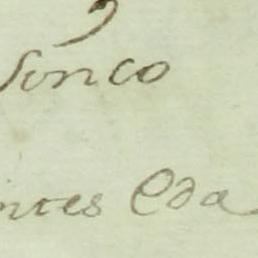 Sonco
ntes Eda